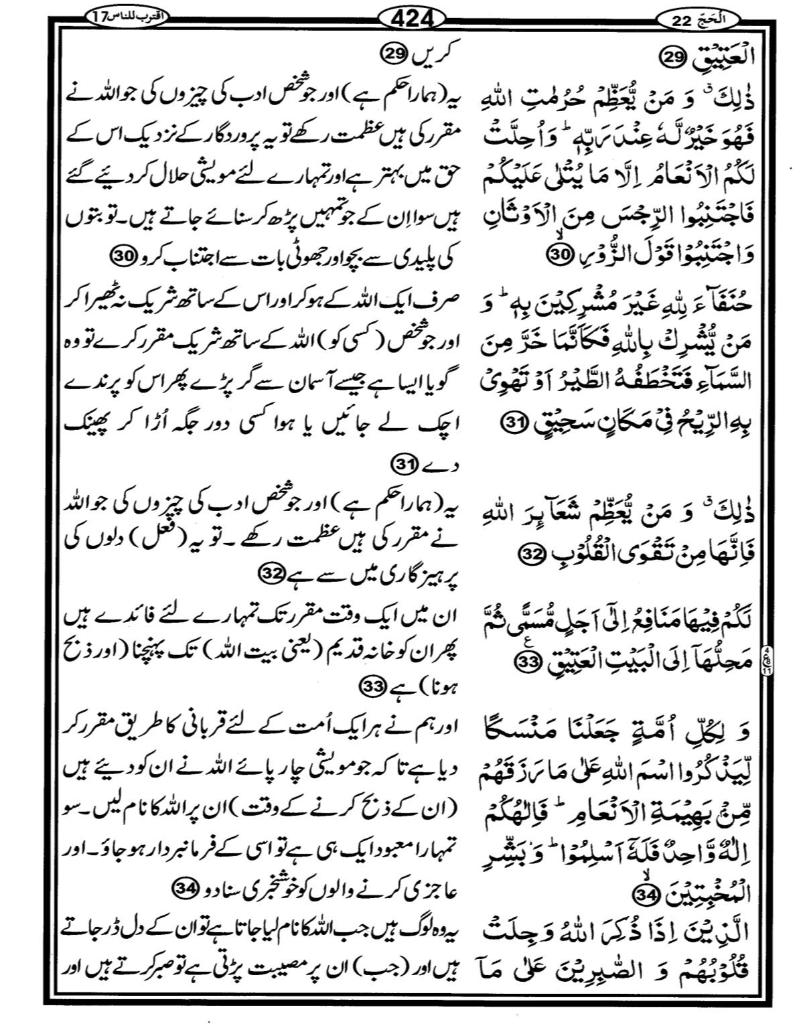 اقترب للناس 17
424
الْحَجّ 22
الْعَتِيْقِ 29
ذٰلِكَ ۗ وَ مَنْ يُّعَظِّمْ حُرُمٰتِ اللّٰهِ
فَهُوَ خَيْرٌ لَّهٗ عِنْدَ رَبِّهٖ ؕ وَ اُحِلَّتْ
لَكُمُ الْاَنْعَامُ اِلَّا مَا يُتْلٰى عَلَيْكُمْ
فَاجْتَنِبُوا الرِّجْسَ مِنَ الْاَوْثَانِ
وَاجْتَنِبُوْا قَوْلَ الزُّوْرِ ۙ 30
حُنَفَآءَ لِلّٰهِ غَيْرَ مُشْرِكِيْنَ بِهٖ ؕ وَ
مَنْ يُّشْرِكْ بِاللّٰهِ فَكَاَنَّمَا خَرَّ مِنَ
السَّمَآءِ فَتَخْطَفُهُ الطَّيْرُ اَوْ تَهْوِيْ
بِهِ الرِّيْحُ فِيْ مَكَانٍ سَحِيْقٍ 31
ذٰلِكَ ۗ وَ مَنْ يُّعَظِّمْ شَعَآئِرَ اللّٰهِ
فَاِنَّهَا مِنْ تَقْوَى الْقُلُوْبِ 32
لَكُمْ فِيْهَا مَنَافِعُ اِلٰٓى اَجَلٍ مُّسَمًّى ثُمَّ
مَحِلُّهَاۤ اِلَى الْبَيْتِ الْعَتِيْقِ ع 33
وَ لِكُلِّ اُمَّةٍ جَعَلْنَا مَنْسَكًا
لِّيَذْكُرُوا اسْمَ اللّٰهِ عَلٰى مَا رَزَقَهُمْ
مِّنْۢ بَهِيْمَةِ الْاَنْعَامِ ؕ فَاِلٰهُكُمْ
اِلٰهٌ وَّاحِدٌ فَلَهٗۤ اَسْلِمُوْا ؕ وَ بَشِّرِ
الْمُخْبِتِيْنَ ۙ 34
الَّذِيْنَ اِذَا ذُكِرَ اللّٰهُ وَجِلَتْ
قُلُوْبُهُمْ وَ الصّٰبِرِيْنَ عَلٰى مَاۤ
کریں 29
یہ (ہمارا حکم ہے) اور جو شخص ادب کی چیزوں کی جو اللہ نے
مقرر کی ہیں عظمت رکھے تو یہ پروردگار کے نزدیک اس کے
حق میں بہتر ہے اور تمہارے لئے مویشی حلال کر دیئے گئے
ہیں سوا اِن کے جو تمہیں پڑھ کر سنائے جاتے ہیں۔ تو بتوں
کی پلیدی سے بچو اور جھوٹی بات سے اجتناب کرو 30
صرف ایک اللہ کے ہو کر اور اس کے ساتھ شریک نہ ٹھیرا کر
اور جو شخص (کسی کو) اللہ کے ساتھ شریک مقرر کرے تو وہ
گویا ایسا ہے جیسے آسمان سے گر پڑے پھر اس کو پرندے
اچک لے جائیں یا ہوا کسی دور جگہ اُڑا کر پھینک
دے 31
یہ (ہمارا حکم ہے) اور جو شخص ادب کی چیزوں کی جو اللہ
نے مقرر کی ہیں عظمت رکھے ۔ تو یہ (فعل) دلوں کی
پرہیزگاری میں سے ہے 32
ان میں ایک وقت مقرر تک تمہارے لئے فائدے ہیں
پھر ان کو خانہ قدیم (یعنی بیت اللہ) تک پہنچنا (اور ذبح
ہونا) ہے 33
اور ہم نے ہر ایک اُمت کے لئے قربانی کا طریق مقرر کر
دیا ہے تاکہ جو مویشی چارپائے اللہ نے ان کو دیئے ہیں
(ان کے ذبح کرنے کے وقت) ان پر اللہ کا نام لیں ۔ سو
تمہارا معبود ایک ہی ہے تو اسی کے فرمانبردار ہو جاؤ ۔ اور
عاجزی کرنے والوں کو خوشخبری سنا دو 34
یہ وہ لوگ ہیں جب اللہ کا نام لیا جاتا ہے تو ان کے دل ڈر جاتے
ہیں اور (جب) ان پر مصیبت پڑتی ہے تو صبر کرتے ہیں اور